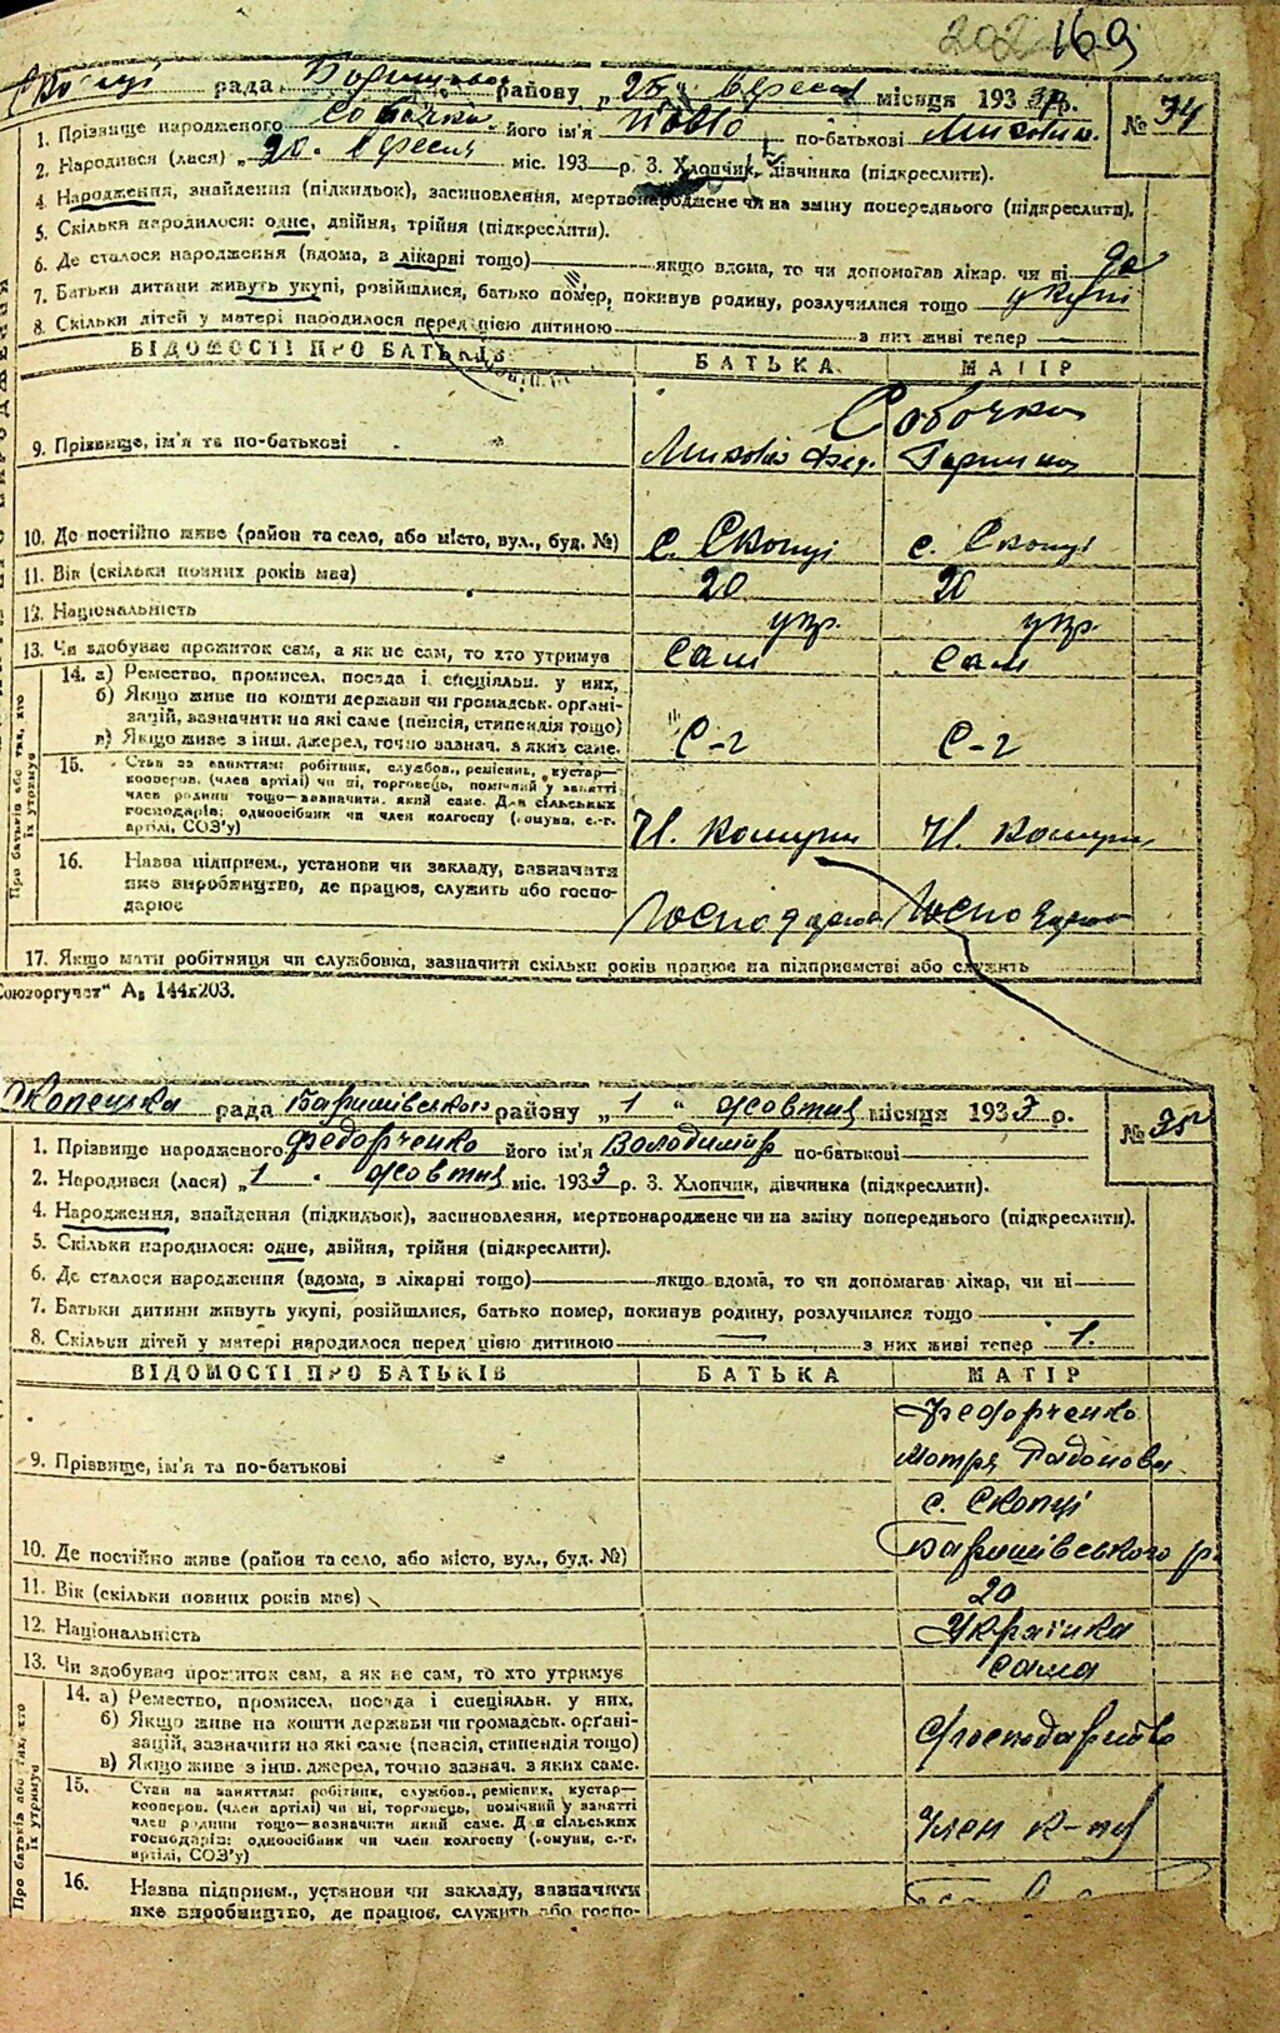 202 169
Скопці рада Боришівськ району „25" вересня місяця 1933 р. № 34
1. Прізвище народженого Собочка його ім'я Павло по-батькові Миколич.
2. Народився (лася) „20. вересня міс. 193 р. 3. Хлопчик, дівчинка (підкреслити).
4. Народження, знайдення (підкидьок), засиновлення, мертвонароджене чи на зміну попереднього (підкреслити).
5. Скільки народилося: одне, двійня, трійня (підкреслити).
6. Де сталося народження (вдома, в лікарні тощо) якщо вдома, то чи допомагав лікар. чи ні да
7. Батьки дитини живуть укупі, розійшлися, батько помер, покинув родину, розлучилися тощо укупі
8. Скільки дітей у матері народилося перед цією дитиною з них живі тепер
ВІДОМОСТІ ПРО БАТЬКІВ БАТЬКА МАТІР
Собочка
9. Прізвище, ім'я та по-батькові Микола Фед. Горпина
10. Де постійно живе (район та село, або місто, вул., буд. №) с. Скопці с. Скопці
11. Вік (скільки повних років має) 20 20
12. Національність укр. укр.
13. Чи здобуває прожиток сам, а як не сам, то хто утримує сам сам
Про батьків або тих, хто їх утримує
14. а) Ремество, промисел, посада і спеціяльн. у них,
б) Якщо живе на кошти держави чи громадськ. органі-
зацій, зазначити на які саме (пенсія, стипендія тощо)
в) Якщо живе з інш. джерел, точно зазнач. з яких саме. С-г С-г
15. Стан за заняттям: робітник, службов., ремісник, кустар—
кооперов. (член артілі) чи ні, торговець, помічний у занятті
член родини тощо—зазначити який саме. Для сільських
господарів: одноосібник чи член колгоспу (комуни, с.-г.
артілі, СОЗ'у) Ч. комуни Ч. комуни
16. Назва підприєм., установи чи закладу, зазначити
яке виробництво, де працює, служить або госпо-
дарює
17. Якщо мати робітниця чи службовка, зазначити скільки років працює на підприємстві або служить
Союзоргучет" А5 144х203.
Скопецька рада Баришівського району „1" жовтня місяця 1933 р. № 35
1. Прізвище народженого Федорченко його ім'я Володимир по-батькові
2. Народився (лася) „1 " жовтня міс. 1933 р. 3. Хлопчик, дівчинка (підкреслити).
4. Народження, знайдення (підкидьок), засиновлення, мертвонароджене чи на зміну попереднього (підкреслити).
5. Скільки народилося: одне, двійня, трійня (підкреслити).
6. Де сталося народження (вдома, в лікарні тощо) якщо вдома, то чи допомагав лікар, чи ні
7. Батьки дитини живуть укупі, розійшлися, батько помер, покинув родину, розлучилися тощо
8. Скільки дітей у матері народилося перед цією дитиною — з них живі тепер 1.
ВІДОМОСТІ ПРО БАТЬКІВ БАТЬКА МАТІР
Федорченко
9. Прізвище, ім'я та по-батькові Мотря
с. Скопці
10. Де постійно живе (район та село, або місто, вул., буд. №) Баришівського р.
11. Вік (скільки повних років має) 20
12. Національність Українка
13. Чи здобуває прожиток сам, а як не сам, то хто утримує сама
Про батьків або тих, хто їх утримує
14. а) Ремество, промисел, посада і спеціяльн. у них.
б) Якщо живе на кошти держави чи громадськ. органі-
зацій, зазначити на які саме (пенсія, стипендія тощо)
в) Якщо живе з інш. джерел, точно зазнач. з яких саме.
15. Стан за заняттям: робітник, службов., ремісник, кустар—
кооперов. (член артілі) чи ні, торговець, помічний у занятті
член родини тощо—зазначити який саме. Для сільських
господарів: одноосібник чи член колгоспу (комуни, с.-г.
артілі, СОЗ'у) Член
16. Назва підприєм., установи чи закладу, зазначити
яке виробництво, де працює, служить або госпо-